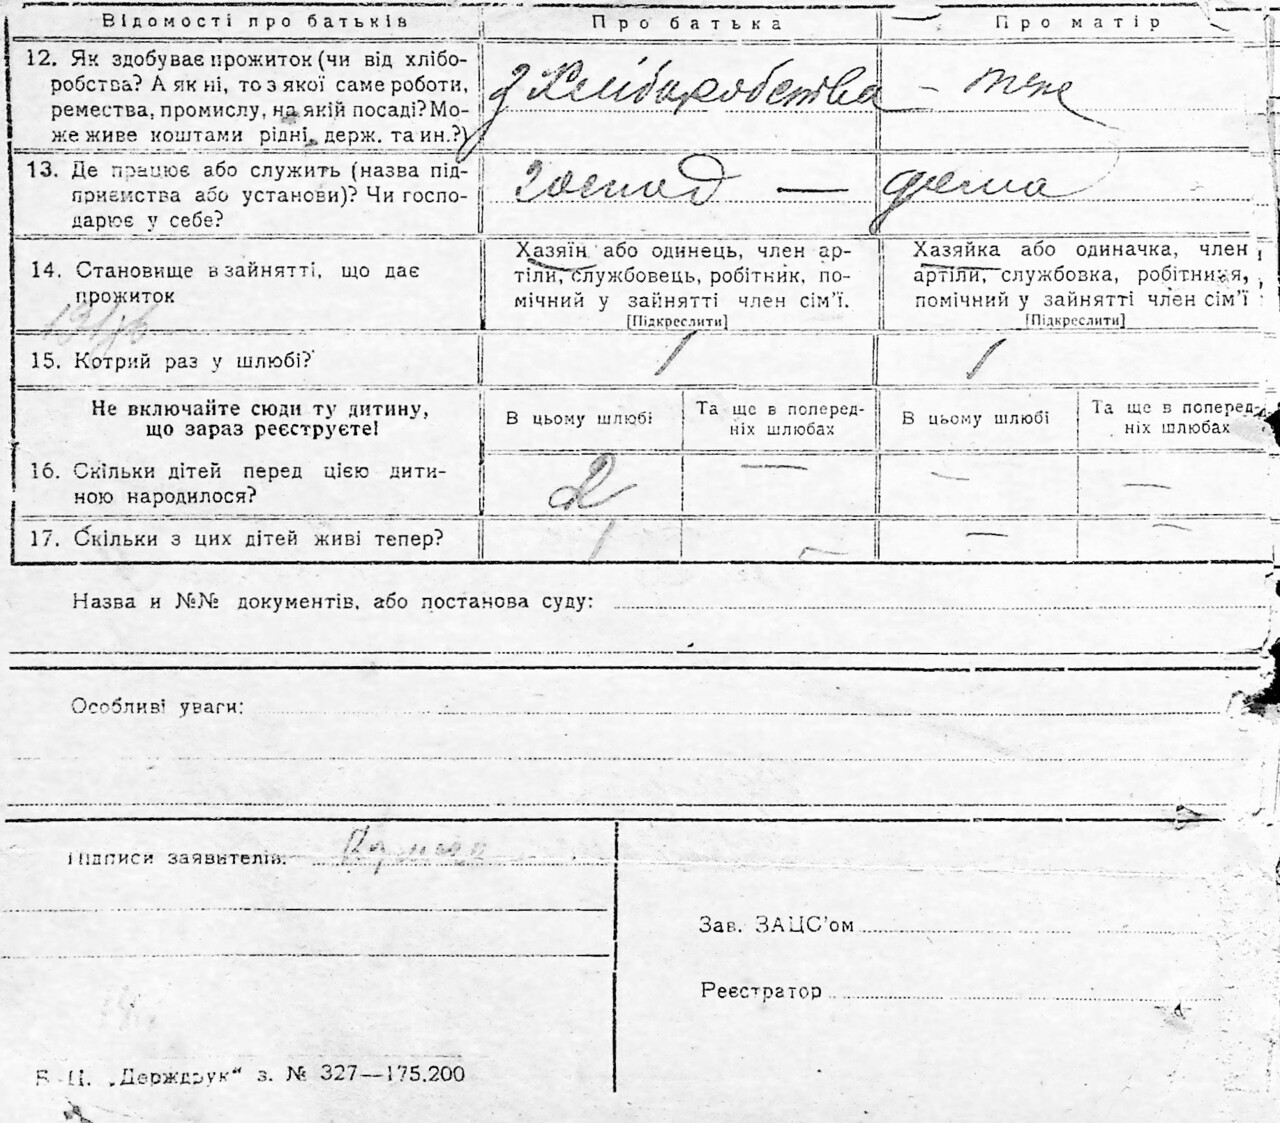 Відомості про батьків Про батька Про матір
12. Як здобуває прожиток (чи від хлібо-
робства? А як ні, то з якої саме роботи,
ремества, промислу, на якій посаді? Мо-
же живе коштами рідні, держ. та ин.?)
з Хліборобства – теж
13. Де працює або служить (назва під-
приємства або установи)? Чи госпо-
дарює у себе?
господ — дома
14. Становище в зайнятті, що дає
прожиток
Хазяїн або одинець, член ар-
тіли, службовець, робітник, по-
мічний у зайнятті член сім’ї.
[Підкреслити]
Хазяйка або одиначка, член
артіли, службовка, робітниця,
помічний у зайнятті член сім’ї
[Підкреслити]
15. Котрий раз у шлюбі? 1 1
Не включайте сюди ту дитину,
що зараз реєструєте!
В цьому шлюбі
Та ще в поперед-
ніх шлюбах
В цьому шлюбі
Та ще в поперед-
ніх шлюбах
16. Скільки дітей перед цією дити-
ною народилося?
2 — — —
17. Скільки з цих дітей живі тепер? 1 – — —
Назва и №№ документів, або постанова суду:
Особливі уваги:
Підписи заявителів:
Зав. ЗАЦС’ом
Реєстратор
„Держдрук“ з. № 327—175.200